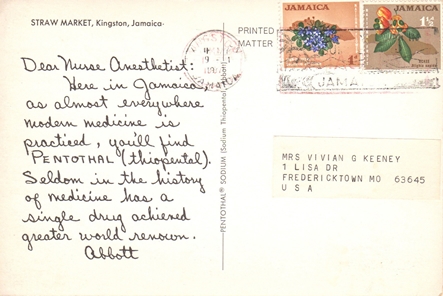 STRAW MARKET, Kingston, Jamaica
Dear Nurse Anesthetist:
Here in Jamaica
as almost everywhere
modern medicine is
practiced, you'll find
PENTOTHAL (thiopental).
Seldom in the history
of medicine has a
single drug achieved
greater world renown.
Abbott
PENTOTHAL® SODIUM (Sodium Thiopental)
PRINTED
MATTER
JAMAICA
JAMAICA
1½
JAMA
MRS VIVIAN G KEENEY
1 LISA DR
FREDERICKTOWN MO 63645
U S A